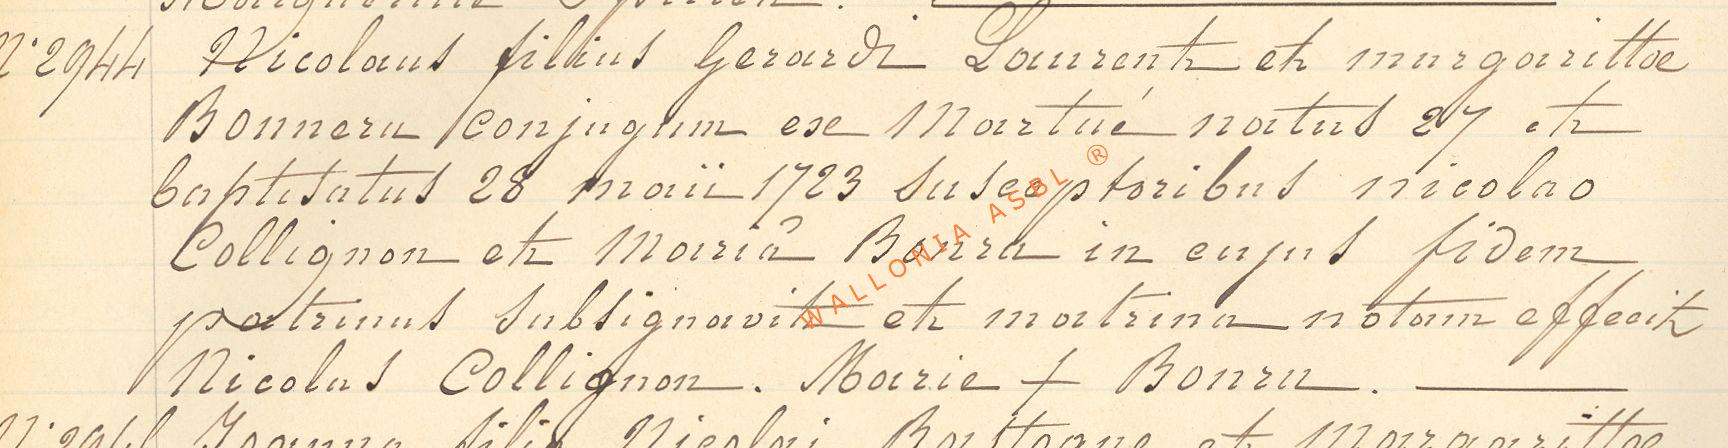 N° 2944 Nicolaus filius Gerardi Laurent et margarittae
Bonnera conjugum ex Martué natus 27 et
baptisatus 28 maii 1723 susceptoribus nicolao
Collignon et Mariâ Bonra in cujus fidem
patrinus subsignavit et matrina notam effecit
Nicolas Collignon. Marie + Bonra.
WALLONIA ASBL ®
Joanna filia Nicolai Bastogne et Margarittae